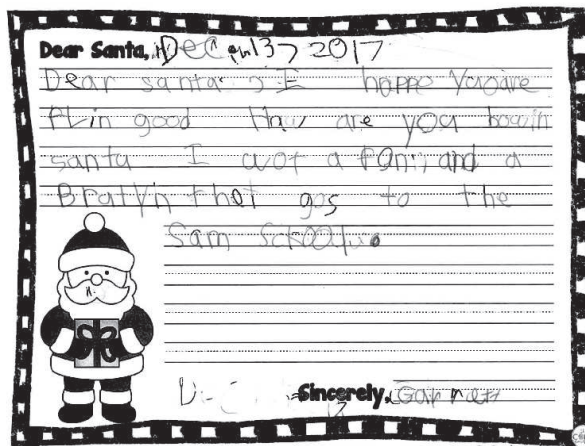 Dear Santa, Dec 13, 2017
Dear santa, I happe You are
flin good How are you bowin
santa I wot a Pony and a
Bratyn that gos to the
Sam Sckool
Sincerely, Garrett